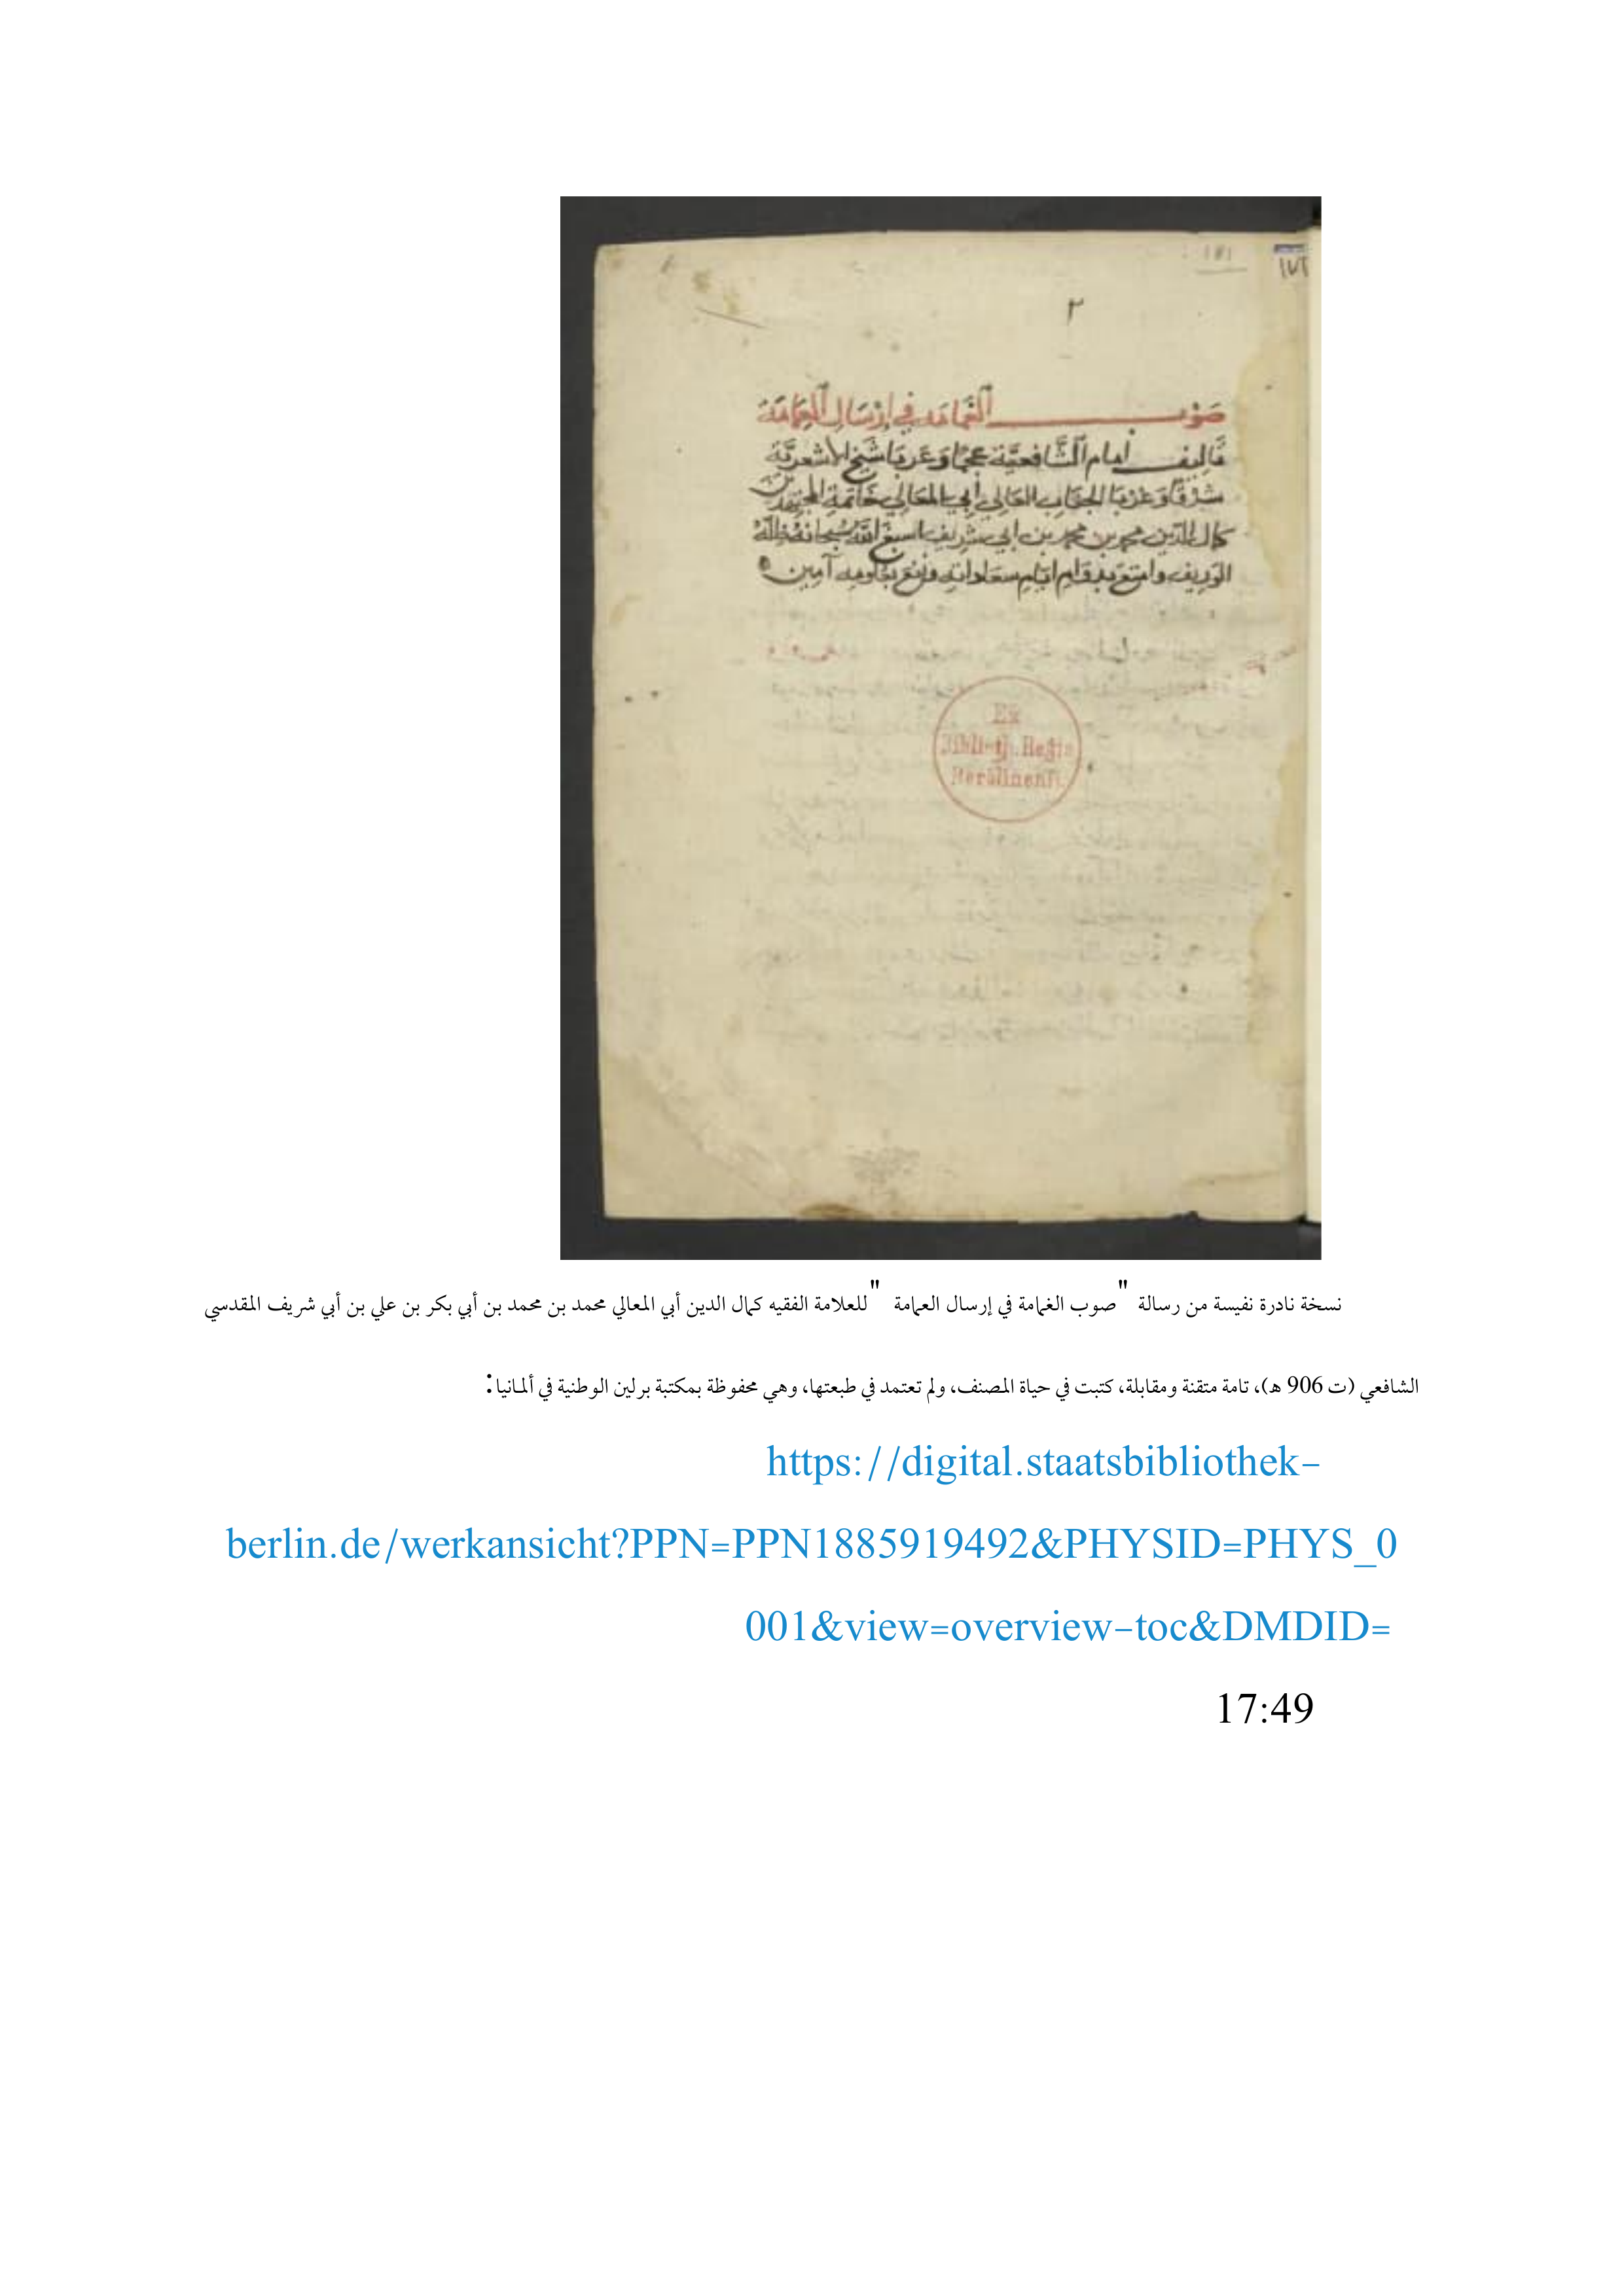 ١٧١
١٧١
٢
صوب الغمامة في إرسال العمامة
تأليف إمام الشافعية عجما وعربا شيخ الأشعرية
شرقا وغربا الجناب العالي أبي المعالي خاتمة المجتهدين
كمال الدين محمد بن محمد بن أبي شريف اسبغ الله سبحانه ظله
الوريف وامتع بدوام ايام سعاداته ونفع بعلومه آمين
Ex
Biblioth. Regia
Berolinensi.
نسخة نادرة نفيسة من رسالة "صوب الغمامة في إرسال العمامة " للعلامة الفقيه كمال الدين أبي المعالي محمد بن محمد بن أبي بكر بن علي بن أبي شريف المقدسي
الشافعي (ت 906 هـ)، تامة متقنة ومقابلة، كتبت في حياة المصنف، ولم تعتمد في طبعتها، وهي محفوظة بمكتبة برلين الوطنية في ألمانيا:
https://digital.staatsbibliothek-
berlin.de/werkansicht?PPN=PPN1885919492&PHYSID=PHYS_0
001&view=overview-toc&DMDID=
17:49